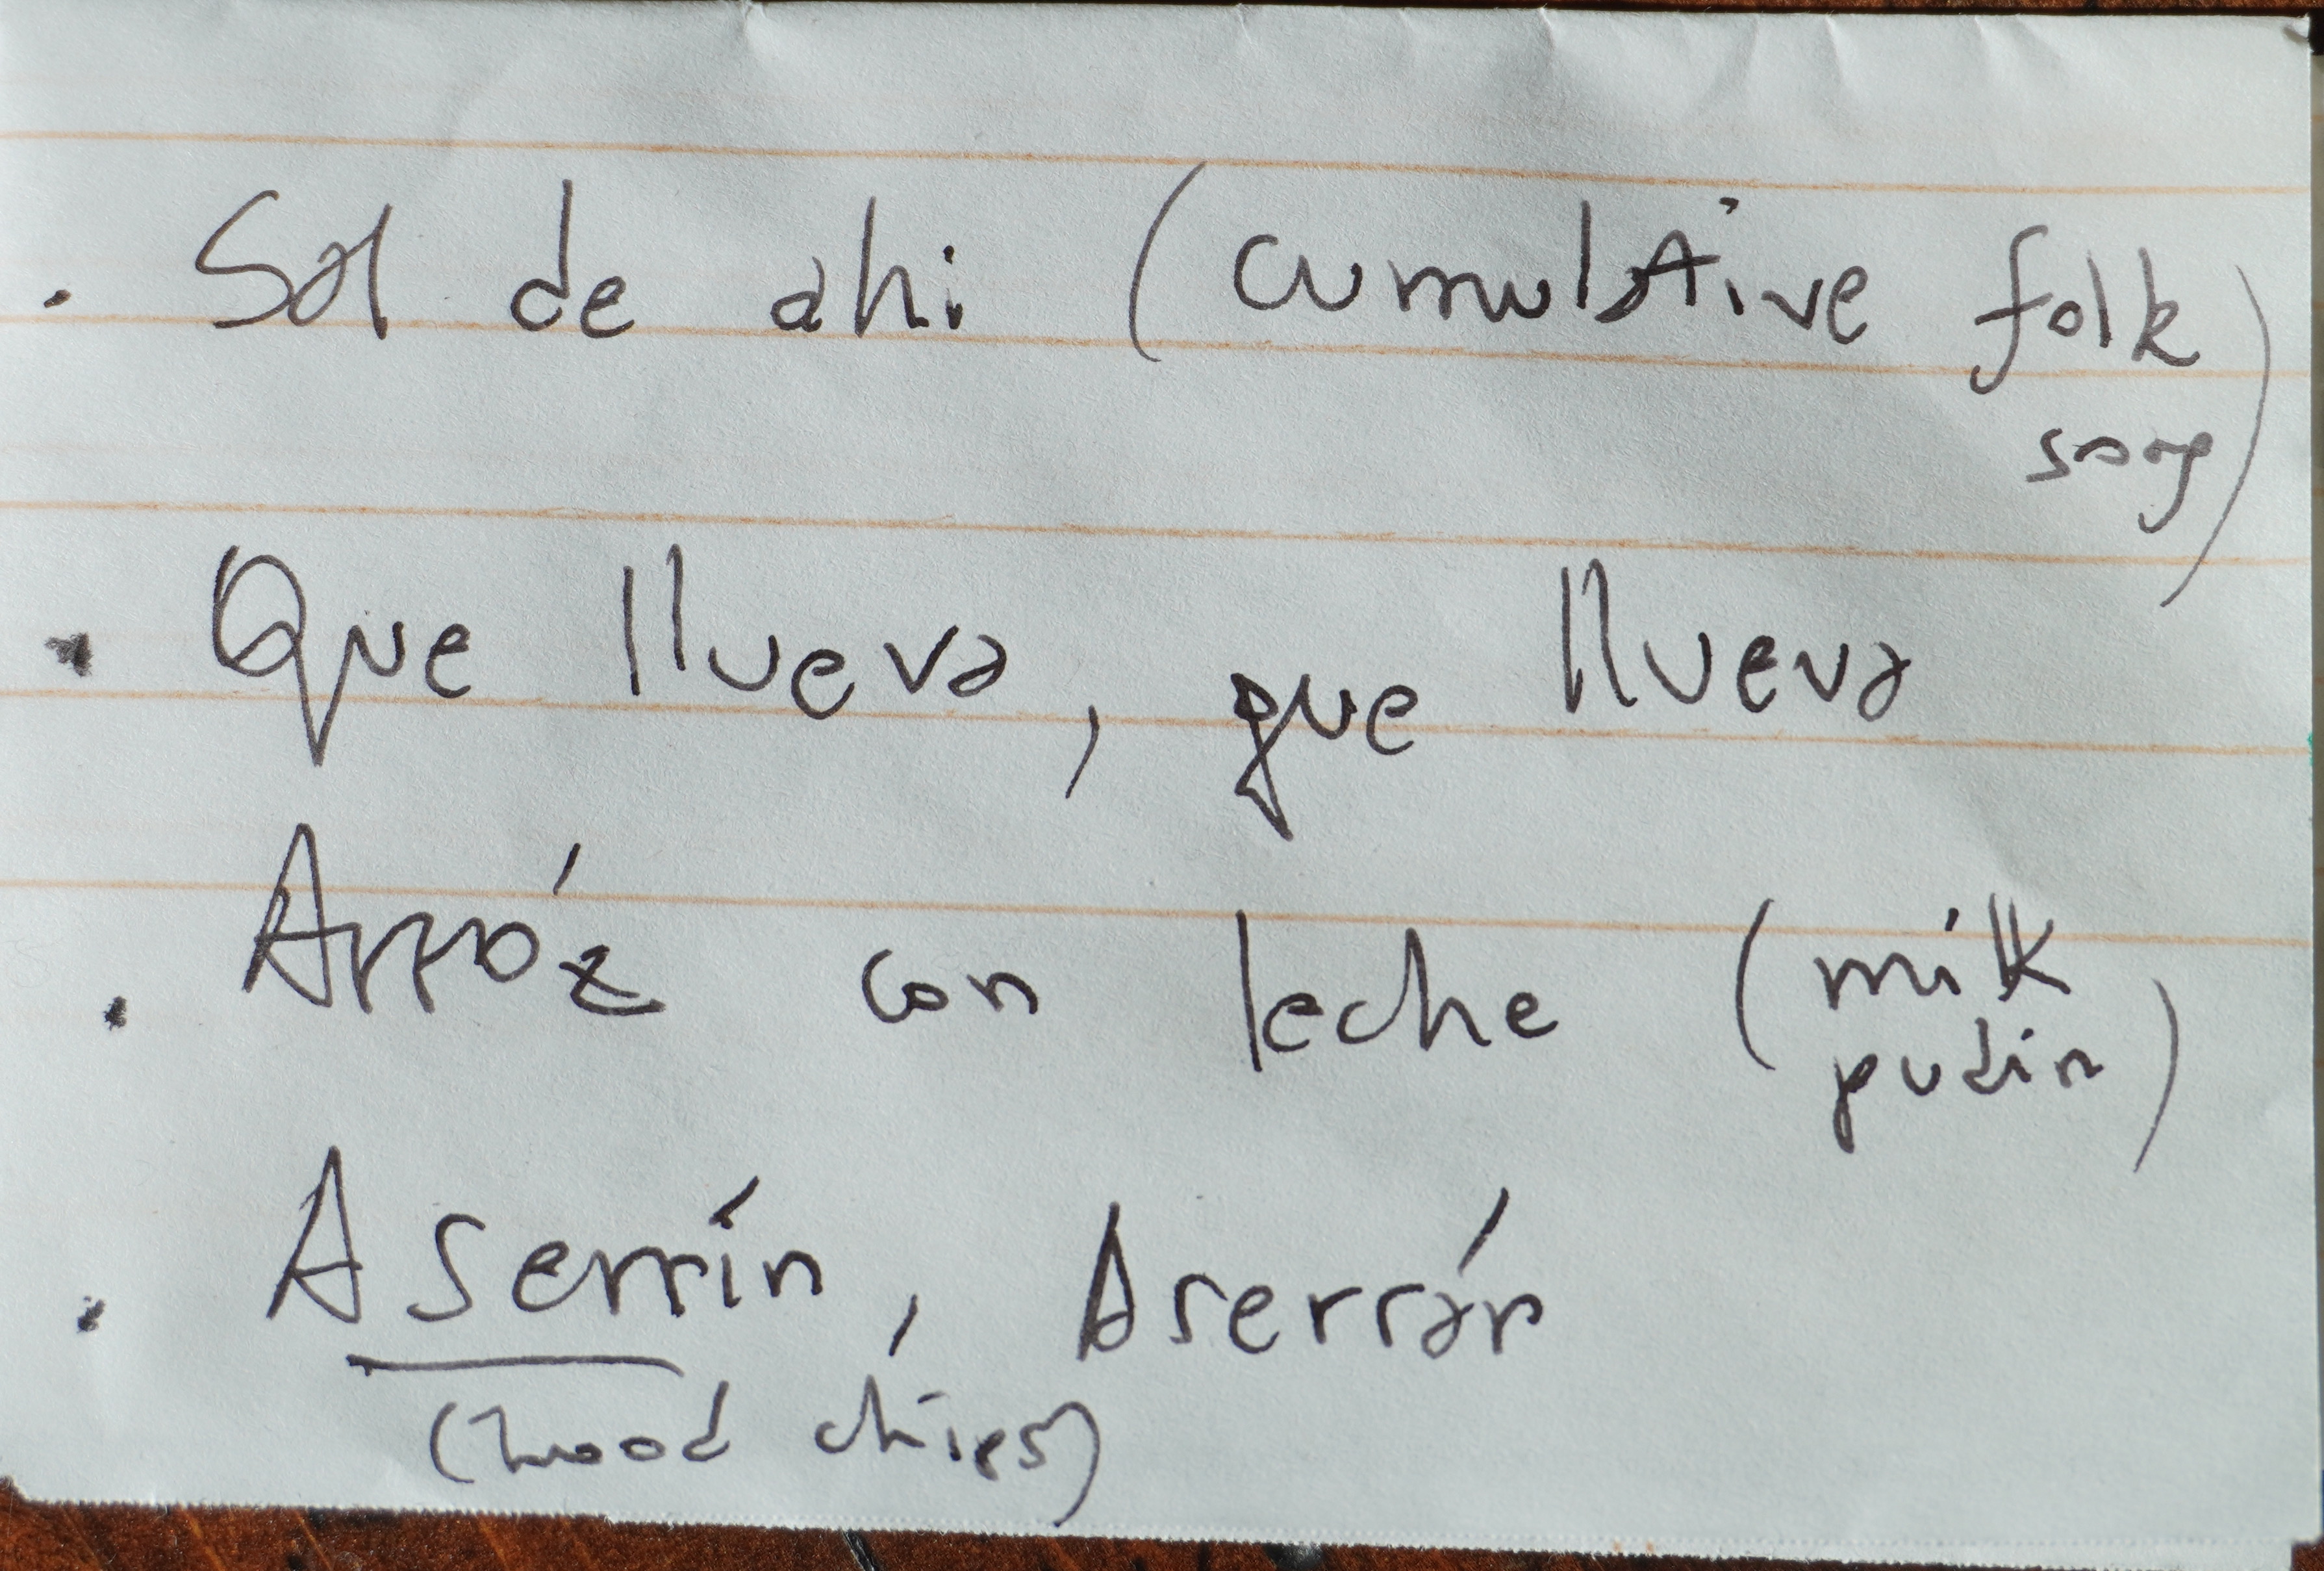 . Sal de ahi (cumulative folk
song)
. Que llueva, que llueva
. Arróz con leche (milk
pudin)
. Aserrín, Aserrán
(wood chips)